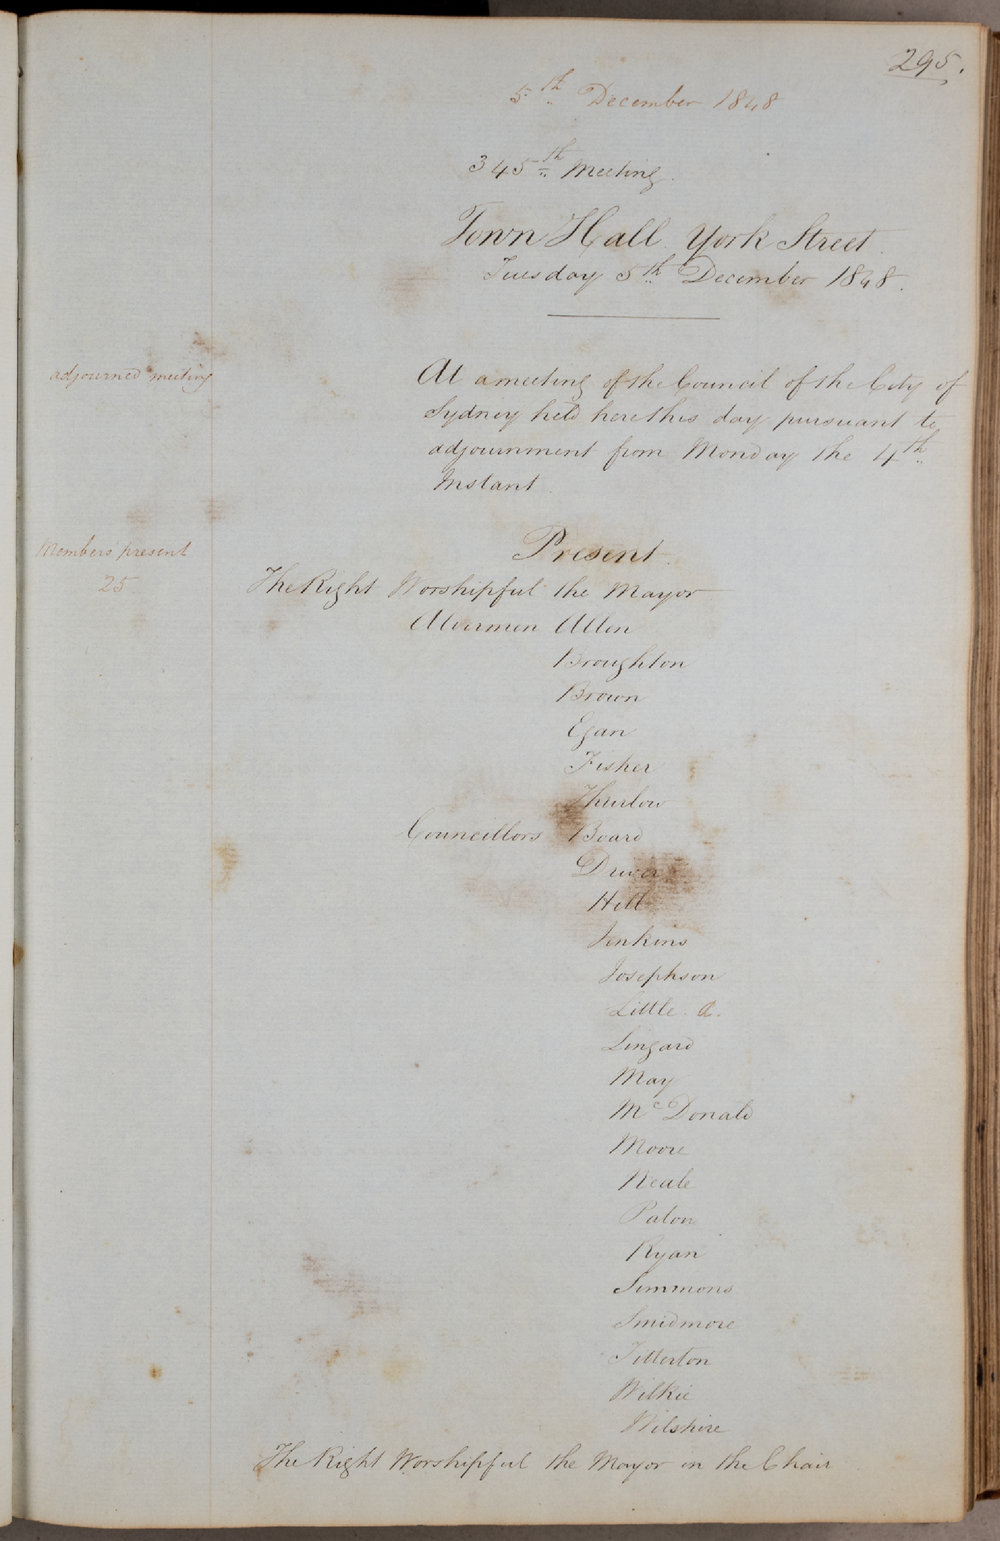 295.
5th December 1848
345th Meeting.
Town Hall York Street.
Tuesday 5th December 1848.
adjourned meeting
At a meeting of the Council of the City of
Sydney held here this day pursuant to
adjournment from Monday the 4th
Instant.
Members present
25
Present.
The Right Worshipful the Mayor
Aldermen Allen
Broughton
Brown
Egan
Fisher
Thurlow
Councillors Board
Driver
Hill
Jenkins
Josephson
Little. A.
Lingard
May
McDonald
Moore
Neale
Paton
Ryan
Simmons
Smidmore
Titterton
Wilkie
Wilshire
The Right Worshipful the Mayor in the Chair